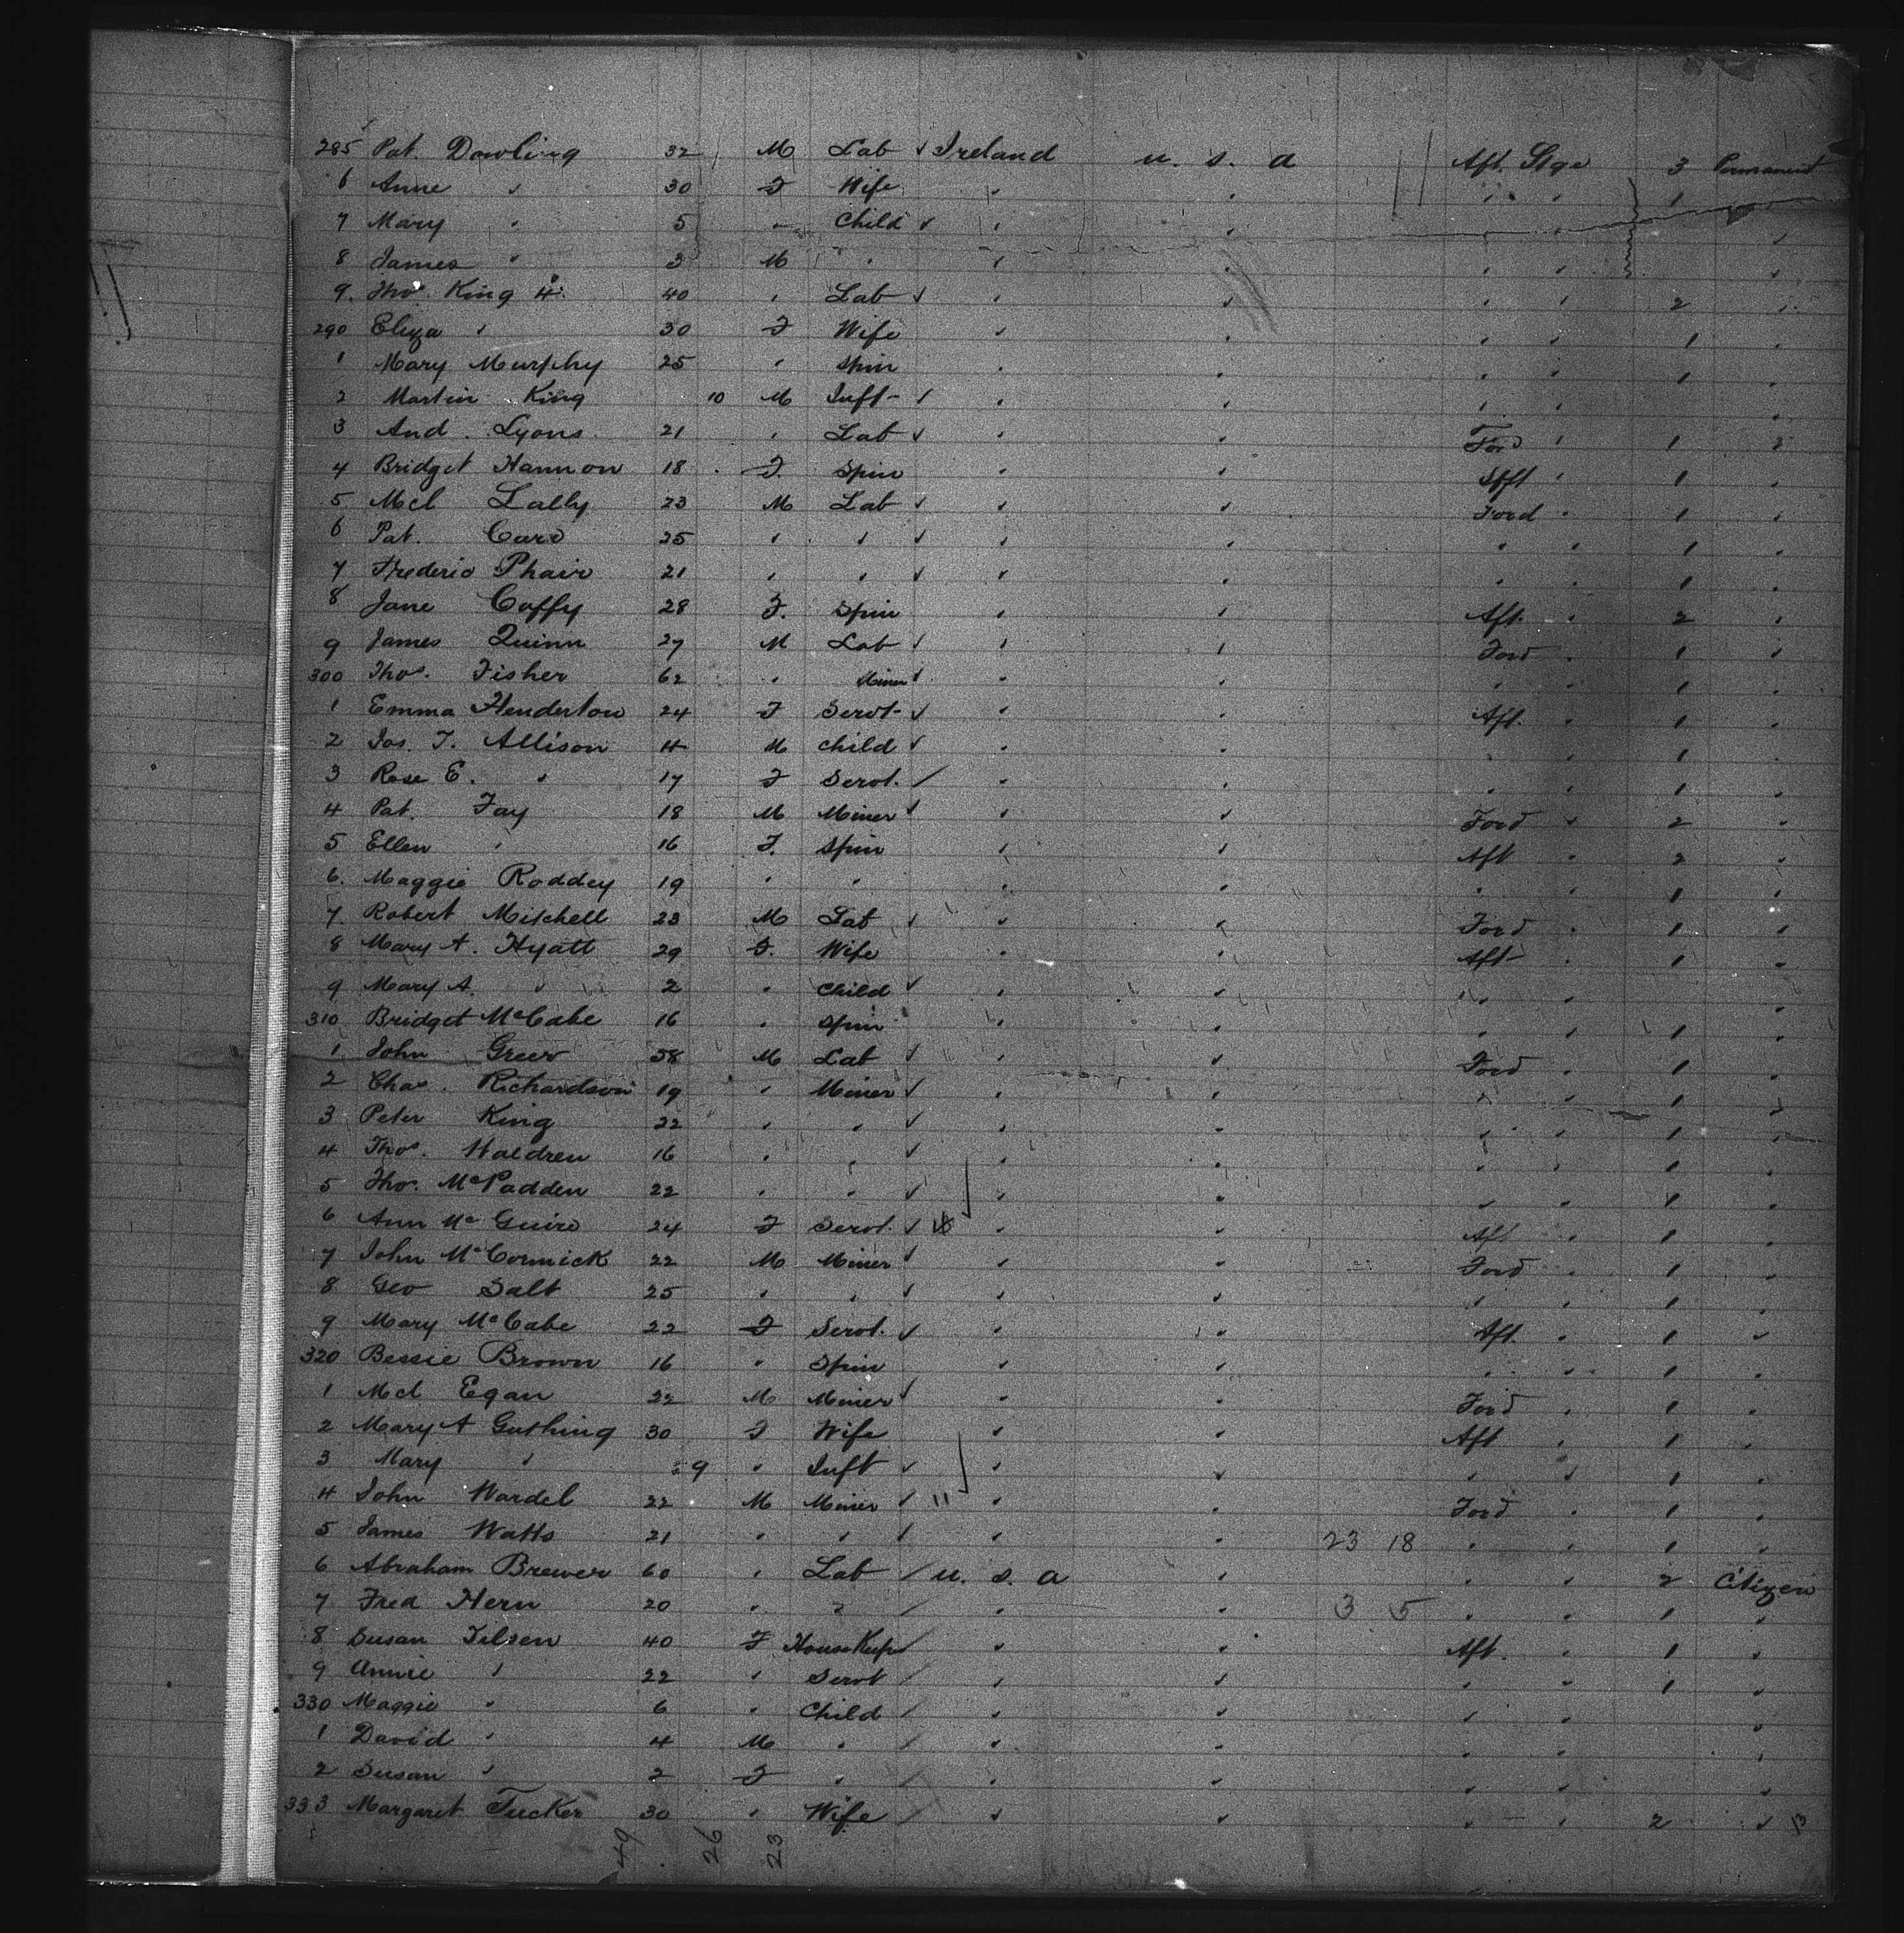 285 Pat. Dowling 32 M Lab ✓ Ireland U. S. A Aft. Stge 3 Permanent
6 Anne " 30 F Wife " " " " 1
7 Mary " 5 " Child ✓ " " " " "
8 James " 3 M " " " " " "
9. Thos. King 4. 40 " Lab ✓ " " " " 2 "
290 Eliza " 30 F Wife " " " " 1 "
1 Mary Murphy 25 " Spin " " " " 1 "
2 Martin King 10 M Inft ✓ " " " " "
3 And. Lyons 21 " Lab ✓ " " Ford " 1 "
4 Bridget Hannon 18 F. Spin " " Aft " 1 "
5 Mcl Lally 23 M Lab ✓ " " Ford " 1 "
6 Pat. Carr 25 " " ✓ " " " " 1 "
7 Frederic Phair 21 " " ✓ " " " " 1 "
8 Jane Caffy 28 F. Spin " " Aft. " 2 "
9 James Quinn 27 M Lab ✓ " " Ford " 1 "
300 Thos. Fisher 62 " Miner ✓ " " " " 1 "
1 Emma Henderton 24 F Servt ✓ " " Aft. " 1 "
2 Jas. T. Allison 4 M Child ✓ " " " " 1 "
3 Rose E. " 17 F Servt. / " " " " 1 "
4 Pat. Fay 18 M Miner ✓ " " Ford " 2 "
5 Ellen " 16 F. Spin " " Aft " 2 "
6. Maggie Roddey 19 " " " " " " 1 "
7 Robert Mitchell 23 M Lab ✓ " " Ford " 1 "
8 Mary A. Hyatt 29 F. Wife " " Aft " 1 "
9 Mary A. " 2 " Child ✓ " " " " "
310 Bridget McCabe 16 " Spin " " " " 1 "
1 John Greer 58 M Lab ✓ " " Ford " 1 "
2 Chas. Richardson 19 " Miner ✓ " " " " 1 "
3 Peter King 22 " " ✓ " " " " 1 "
4 Thos. Waldren 16 " " ✓ " " " " 1 "
5 Tho. McPadden 22 " " ✓ " " " " 1 "
6 Ann McGuire 24 F Servt. ✓ " " Aft " 1 "
7 John McCormick 22 M Miner ✓ " " Ford " 1 "
8 Geo Salt 25 " " ✓ " " " " 1 "
9 Mary McCabe 22 F Servt. ✓ " " Aft. " 1 "
320 Bessie Brown 16 " Spin " " " " 1 "
1 Mcl Egan 22 M Miner ✓ " " Ford " 1 "
2 Mary A Gushing 30 F Wife " " Aft " 1 "
3 Mary " 9 " Inft ✓ " " " " 1 "
4 John Wardel 22 M Miner ✓ 11 " " Ford " 1 "
5 James Watts 21 " " ✓ " " 23 18 " " 1 "
6 Abraham Brewer 60 " Lab / U. S. A " " " 2 Citizen
7 Fred Hern 20 " " / " " 3 5 " " 1 "
8 Susan Tilsen 40 F HouseKeepr / " " Aft. " 1 "
9 Annie " 22 " Servt / " " " " 1 "
330 Maggie " 6 " Child / " " " " "
1 David " 4 M " / " " " " "
2 Susan " 2 F " / " " " " "
333 Margaret Tucker 30 " Wife / " " " " 2 " 13
49 26 23